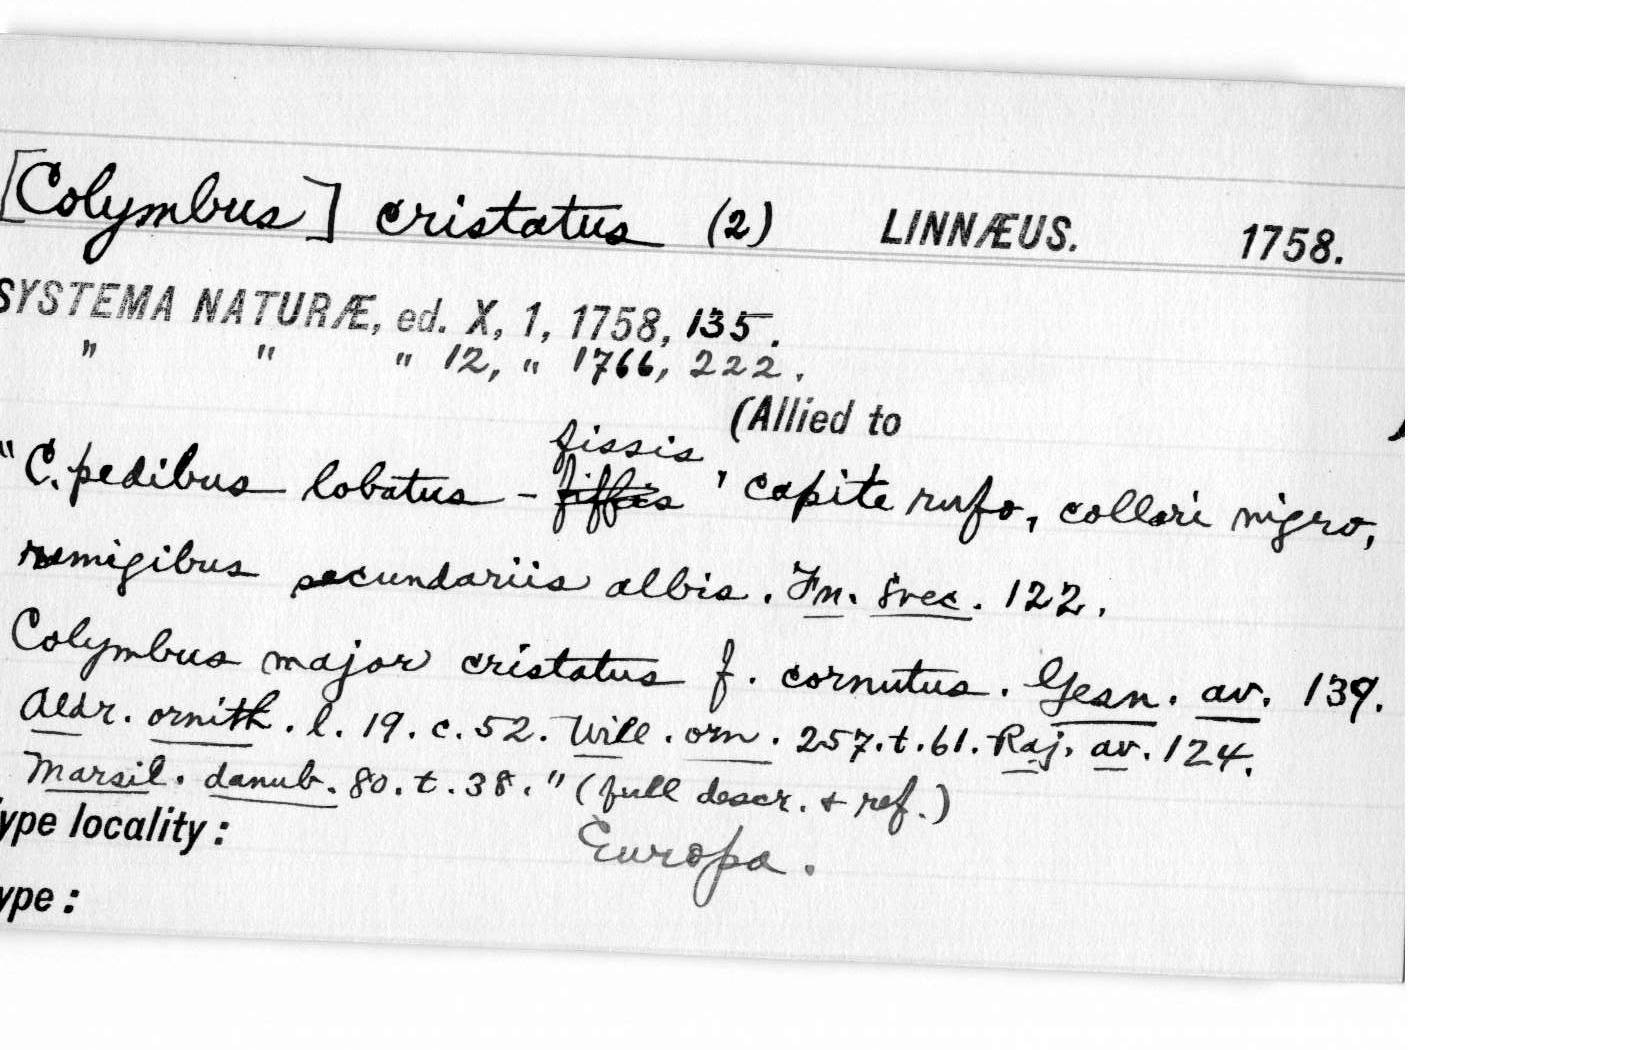 [Colymbus] cristatus (2) LINNÆUS. 1758.
SYSTEMA NATURÆ, ed. X, 1, 1758, 135.
" " " 12, " 1766, 222.
(Allied to )
fissis
"C. pedibus lobatus - fiffis, capite rufo, collari nigro,
remigibus secundariis albis. Fn. Svec. 122.
Colymbus major cristatus f. cornutus. Gesn. av. 139.
Aldr. ornith. l. 19. c. 52. Will. orn. 257. t. 61. Raj. av. 124.
Marsil. danub. 80. t. 38." (full descr. & ref.)
ype locality: Europa.
ype: